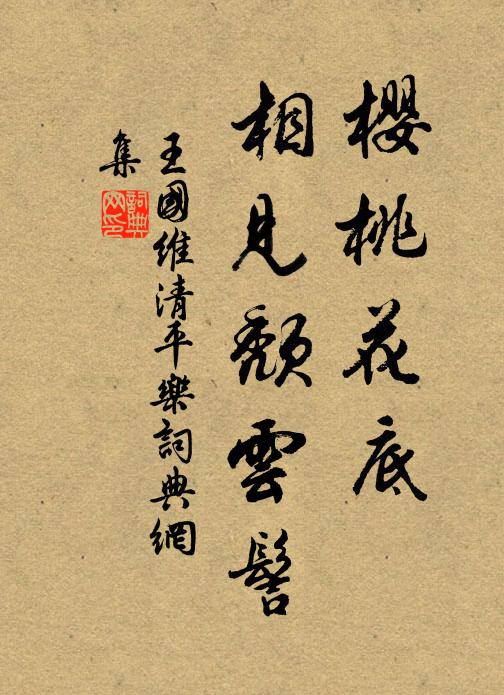 櫻桃花底
相見頹雲髻
王國維清平樂詞典網
集
詞典網印